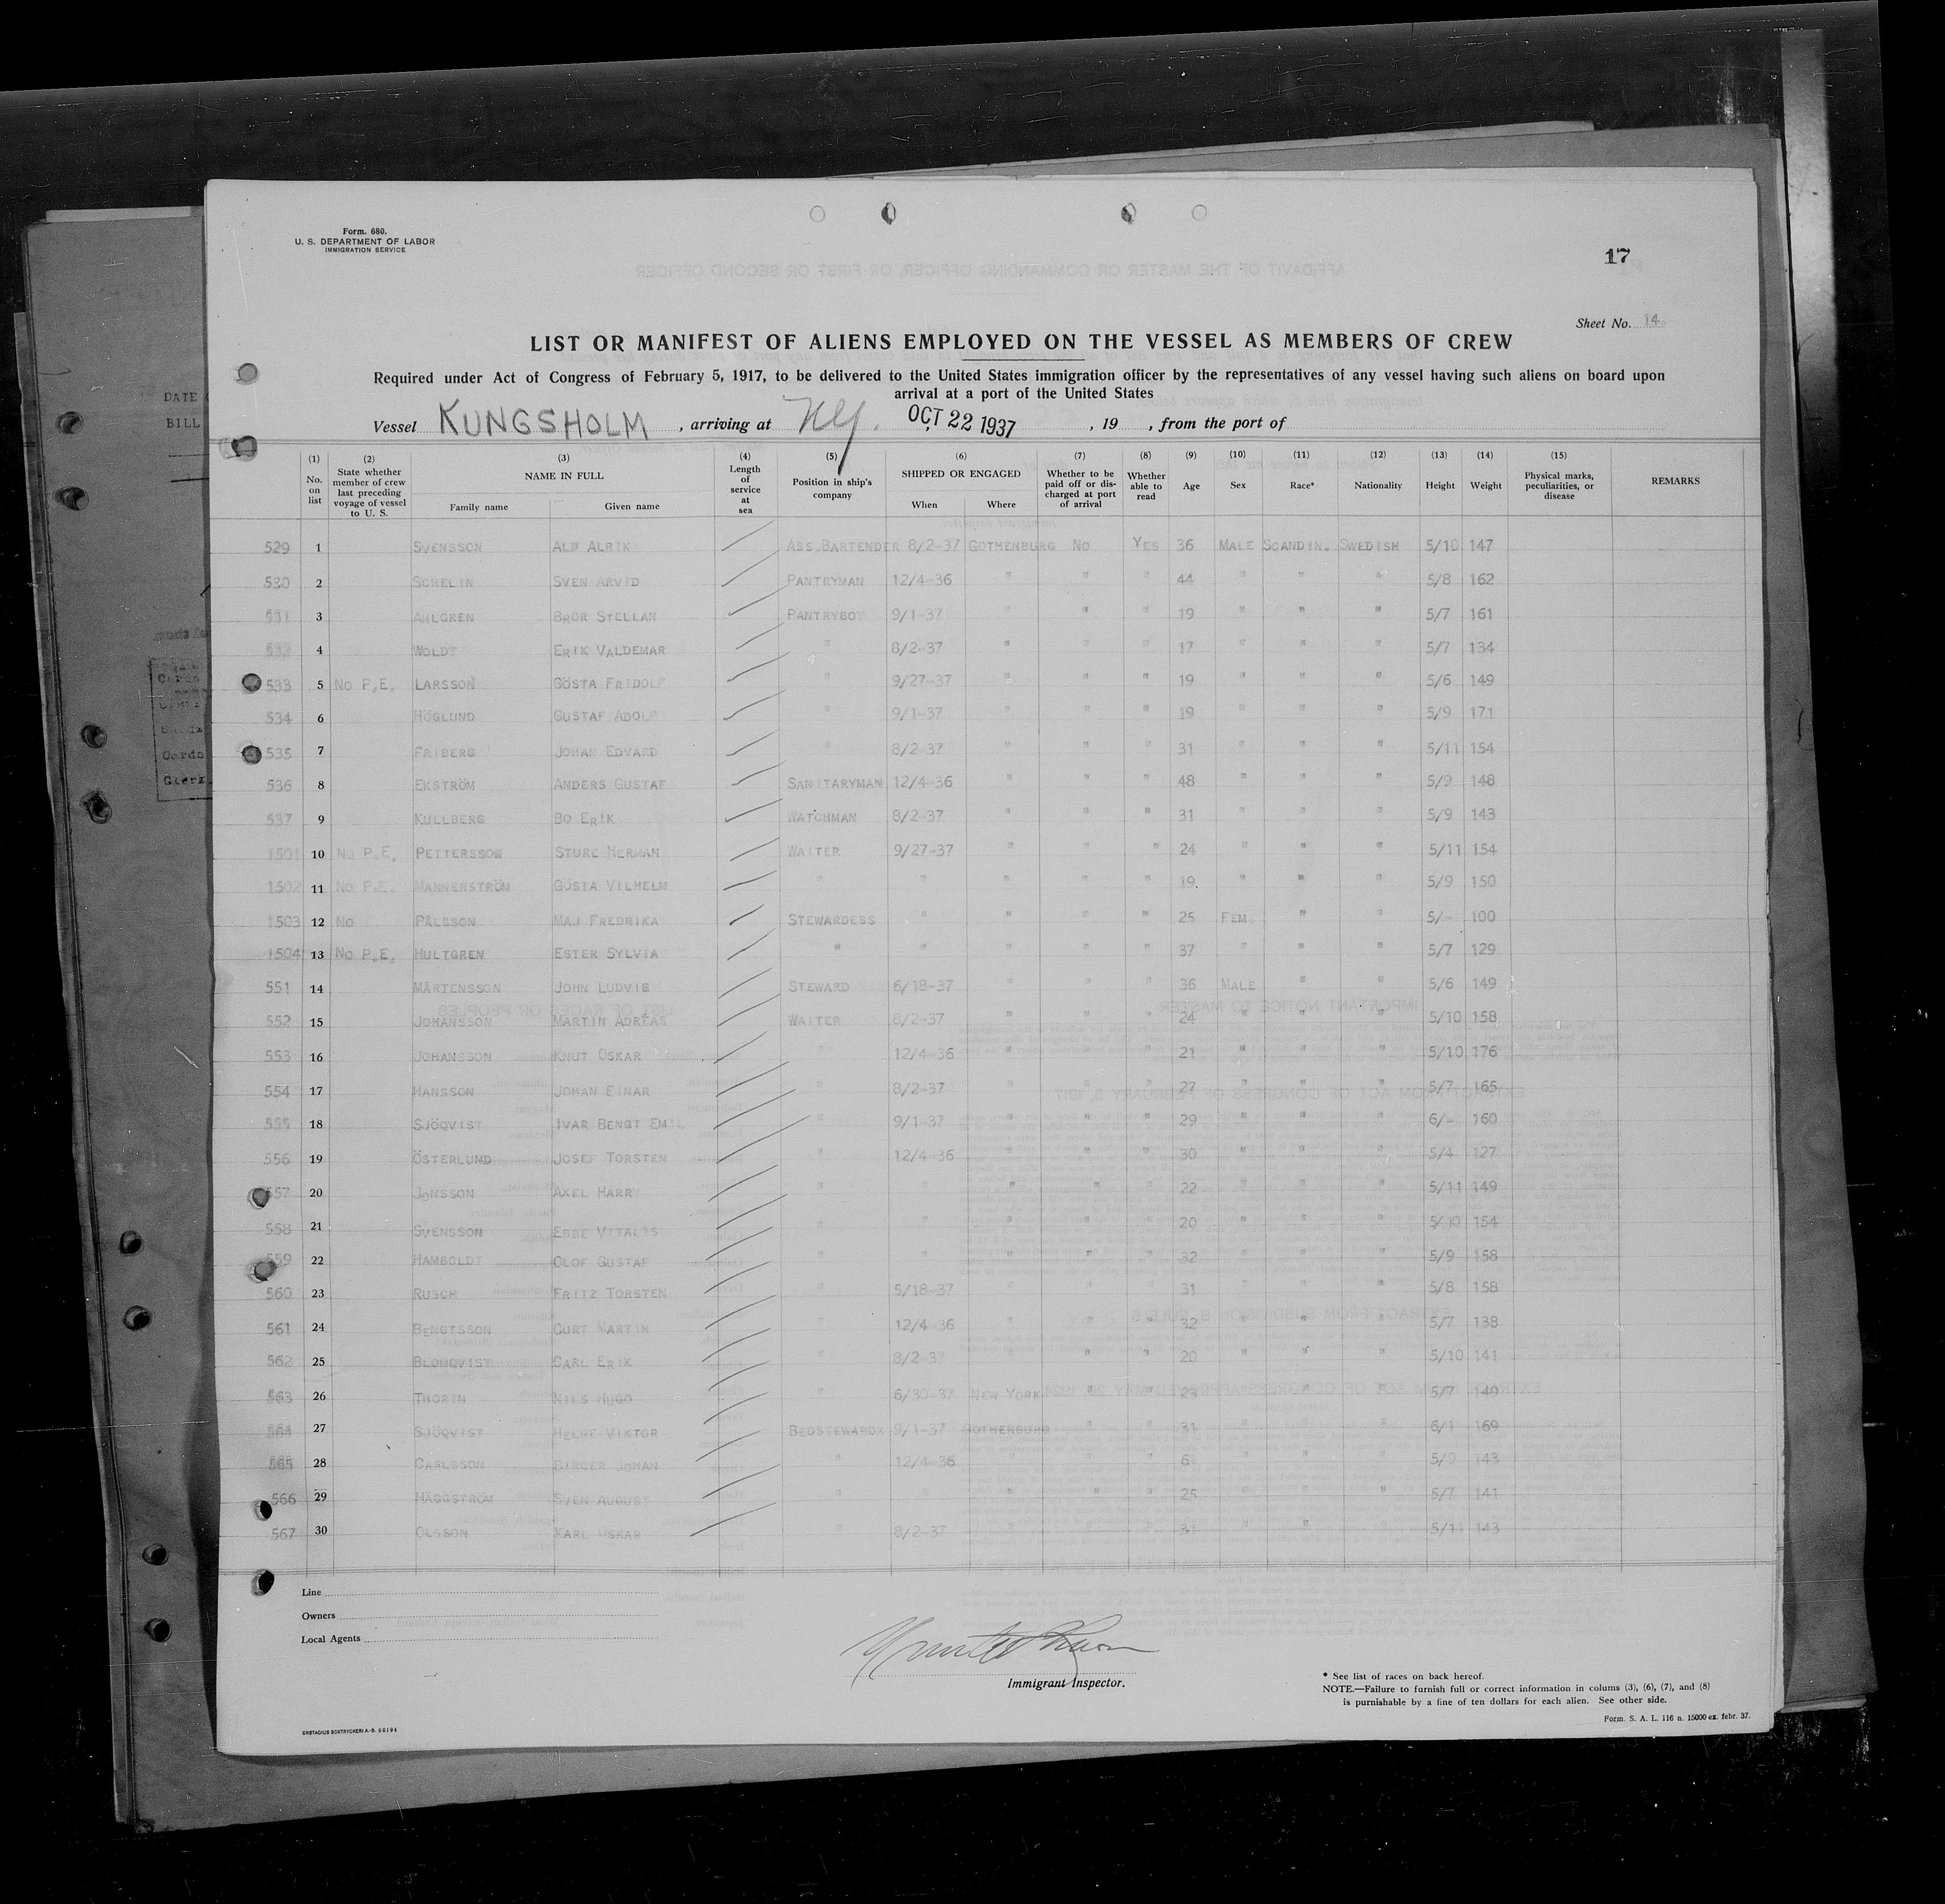 Form. 680.
U. S. DEPARTMENT OF LABOR
IMMIGRATION SERVICE
17
Sheet No. 14
LIST OR MANIFEST OF ALIENS EMPLOYED ON THE VESSEL AS MEMBERS OF CREW
Required under Act of Congress of February 5, 1917, to be delivered to the United States immigration officer by the representatives of any vessel having such aliens on board upon
arrival at a port of the United States
Vessel KUNGSHOLM , arriving at NY. OCT 22 1937 , 19 , from the port of
(1) No. on list (2) State whether member of crew last preceding voyage of vessel to U. S. (3) NAME IN FULL Family name Given name (4) Length of service at sea (5) Position in ship's company (6) SHIPPED OR ENGAGED When Where (7) Whether to be paid off or dis- charged at port of arrival (8) Whether able to read (9) Age (10) Sex (11) Race* (12) Nationality (13) Height (14) Weight (15) Physical marks, peculiarities, or disease REMARKS
529 1 SVENSSON ALF ALRIK ASS.BARTENDER 8/2-37 GOTHENBURG NO YES 36 MALE SCANDIN. SWEDISH 5/10 147
530 2 SCHELIN SVEN ARVID PANTRYMAN 12/4-36 " " " 44 " " " 5/8 162
531 3 AHLGREN BROR STELLAN PANTRYBOY 9/1-37 " " " 19 " " " 5/7 161
4 WOLDT ERIK VALDEMAR " 8/2-37 " " " 17 " " " 5/7 134
533 5 NO P.E. LARSSON GÖSTA FRIDOLF " 9/27-37 " " " 19 " " " 5/6 149
534 6 HÖGLUND GUSTAF ADOLF " 9/1-37 " " " 19 " " " 5/9 171
535 7 FRIBERG JOHAN EDVARD " 8/2-37 " " " 31 " " " 5/11 154
536 8 EKSTRÖM ANDERS GUSTAF SANITARYMAN 12/4-36 " " " 48 " " " 5/9 148
537 9 KULLBERG BO ERIK WATCHMAN 8/2-37 " " " 31 " " " 5/9 143
1501 10 NO P.E. PETTERSSON STURE HERMAN WAITER 9/27-37 " " " 24 " " " 5/11 154
1502 11 NO P.E. MANNERSTRÖM GÖSTA VILHELM " " " " " 19 " " " 5/9 150
1503 12 NO PÅLSSON MAJ FREDRIKA STEWARDESS " " " " 25 FEM. " " 5/- 100
1504 13 NO P.E. HULTGREN ESTER SYLVIA " " " " " 37 " " " 5/7 129
551 14 MÅRTENSSON JOHN LUDVIG STEWARD 6/18-37 " " " 36 MALE " " 5/6 149
552 15 JOHANSSON MARTIN ADREAS WAITER 8/2-37 " " " 24 " " " 5/10 158
553 16 JOHANSSON KNUT OSKAR " 12/4-36 " " " 21 " " " 5/10 176
554 17 HANSSON JOHAN EINAR " 8/2-37 " " " 27 " " " 5/7 165
555 18 SJÖQVIST IVAR BENGT EMIL " 9/1-37 " " " 29 " " " 6/- 160
556 19 ÖSTERLUND JOSEF TORSTEN " 12/4-36 " " " 30 " " " 5/4 127
557 20 JONSSON AXEL HARRY " " " " " 22 " " " 5/11 149
558 21 SVENSSON EBBE VITALIS " " " " " 20 " " " 5/10 154
559 22 HAMBOLDT OLOF GUSTAF " " " " " 32 " " " 5/9 158
560 23 RUSCH FRITZ TORSTEN " 5/18-37 " " " 31 " " " 5/8 158
561 24 BENGTSSON CURT MARTIN " 12/4-36 " " " 32 " " " 5/7 138
562 25 BLOMQVIST CARL ERIK " 8/2-37 " " " 20 " " " 5/10 141
563 26 THORIN NILS HUGO " 6/30-37 NEW YORK " " 23 " " " 5/7 149
564 27 SJÖQVIST HELGE VIKTOR BEDSTEWARDX 9/1-37 GOTHENBURG " " 31 " " " 6/1 169
565 28 CARLSSON BIRGER JOHAN " 12/4-36 " " " " " " 5/9 143
566 29 HÄGGSTRÖM SVEN AUGUST " " " " " 25 " " " 5/7 141
567 30 OLSSON KARL OSKAR " 8/2-37 " " " " " " 5/11 143
Line
Owners
Local Agents
Immigrant Inspector.
* See list of races on back hereof.
NOTE.—Failure to furnish full or correct information in colums (3), (6), (7), and (8)
is punishable by a fine of ten dollars for each alien. See other side.
Form. S. A. L. 116 n. 15000 ex. febr. 37.